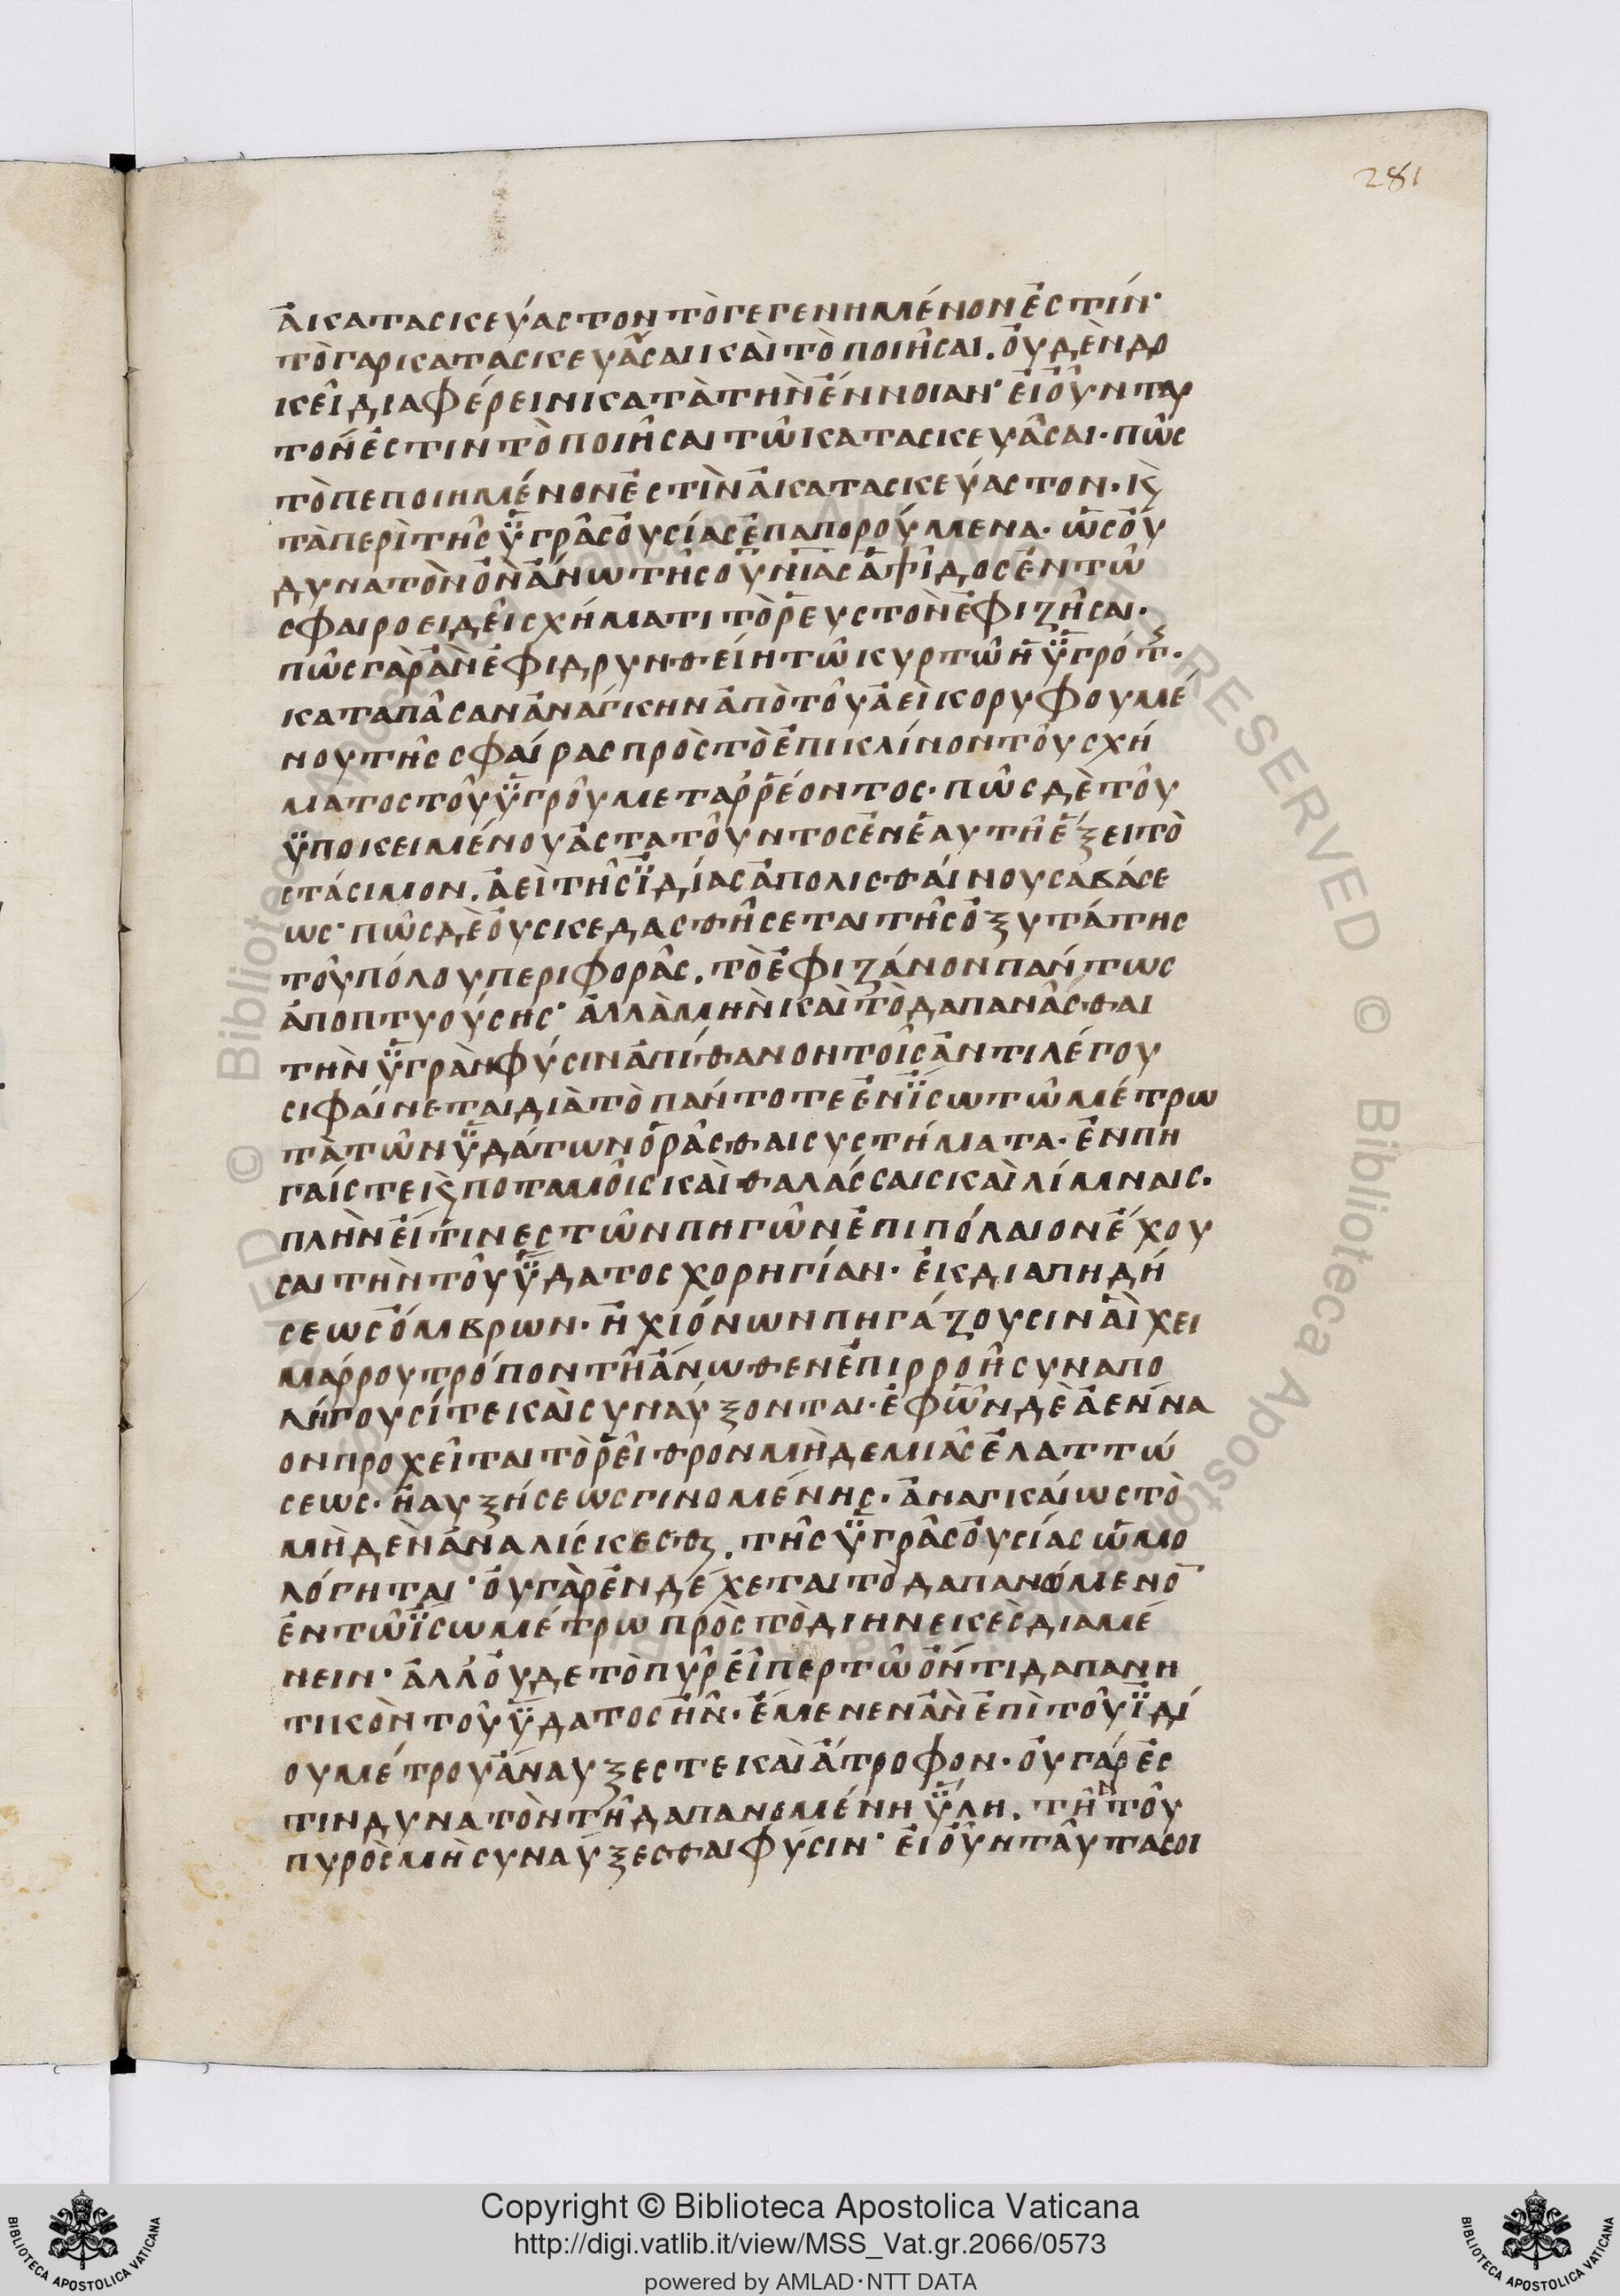 281
ἀκατασκεύαστον τὸ γεγενημένον ἐστίν·
τὸ γαρ κατασκευᾶσαι καὶ τὸ ποιῆσαι. οὐδὲν δο
κεῖ διαφέρειν κατὰ τὴν ἔννοιαν· εἰ οὖν ταρ
τόν ἐστιν τὸ ποιῆσαι τῶ κατασκευᾶσαι. πῶς
τὸ πεποιημένον ἐστὶν ἀκατασκεύαστον. κ̀
τὰ περὶ τῆς ὑγρᾶς οὐσίας ἐπαπορούμενα. ὡς οὐ
δυνατὸν ὂν ἄνω τῆς οὐνίας ἀψῖδος ἐν τῶ
σφαιροειδεῖ σχήματι τὸ ῥευστὸν ἐφιζῆσαι.
πῶς γὰρ ἂν ἐφιδρυνθείη τῶ κυρτῶ ἡ ὑγρότ.
κατα πᾶσαν ἀνάγκην ἀπὸ τοῦ ἀεὶ κορυφουμέ
νου τῆς σφαίρας πρὸς τὸ ἐπικλίνον τοῦ σχή
ματος τοῦ ὑγροῦ μεταρρέοντος. πῶς δὲ τοῦ
ὑποκειμένου ἀστατοῦντος ἐν ἑαυτῆ ἕξει τὸ
στάσιμον. ἀεὶ τῆς ἰδίας ἀπολισθαίνουσα βάσε
ως· πῶς δὲ οὐ σκεδασθήσεται τῆς ὀξυτάτης
τοῦ πόλου περιφορᾶς. τὸ ἐφιζάνον πάντως
ἀποπτυούσης· ἀλλὰ μὴν καὶ τὸ δαπανᾶσθαι
τὴν ὑγρὰν φύσιν ἀπίθανον τοῖς ἀντιλέγου
σι φαίνεται διὰ τὸ πάντοτε ἐν ἴσω τῶ μέτρω
τὰ τῶν ὑδάτων ὁρᾶσθαι συστήματα. ἐν πη
γαίς τε κ̀ ποταμοῖς καὶ θαλάσσαις καὶ λίμναις.
πλὴν εἴ τινες τῶν πηγῶν ἐπιπόλαιον ἔχου
σαι τὴν τοῦ ὕδατος χορηγίαν. ἐκ διαπηδή
σεως ὄμβρων. ἢ χιόνων πηγάζουσιν αἳ χει
μάρρου τρόπον τῆ ἄνωθεν ἐπιρροῆ συναπο
λήγουσί τε καὶ συναύξονται. ἐφ ὧν δὲ ἀένna
ον προχεῖται τὸ ῥεῖθρον μὴδεμιᾶς ἐλαττώ
σεως. ἢ αυξήσεως γινομένης. ἀναγκαίως τὸ
μὴδὲν ἀναλίσκεσθ. τῆς ὑγρᾶς οὐσίας ὡμο
λόγηται· οὐ γὰρ ἐνδέχεται τὸ δαπανώμενο̄
ἐν τῶ ἴσω μέτρω πρὸς τὸ διηνεκὲς διαμέ
νειν· ἀλλ οὐδε τὸ πῦρ εἴπερ τῶ ὄντι δαπανη
τικὸν τοῦ ὕδατος ἦν. ἔμενεν ἂν ἐπὶ τοῦ ἰδί
ου μέτρου ἀναυξές τε καὶ ἄτροφον. οὐ γάρ ἐσ
τιν δυνατὸν τῆ δαπανομένη ὕλη. τὴν τοῦ
πυρὸς μὴ συναύξεσθαι φύσιν· εἰ οὖν ταῦτα σοι
Copyright © Biblioteca Apostolica Vaticana
http://digi.vatlib.it/view/MSS_Vat.gr.2066/0573
powered by AMLAD·NTT DATA